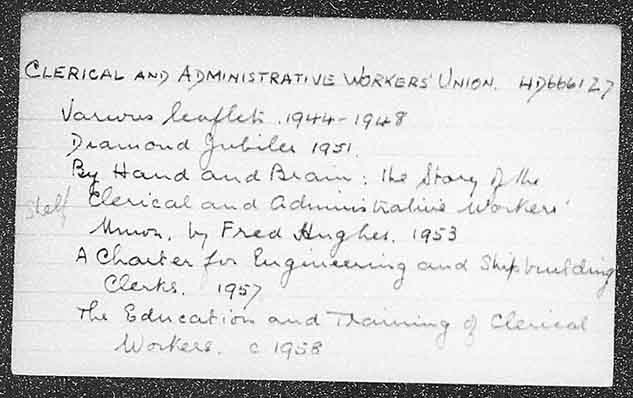 CLERICAL AND ADMINISTRATIVE WORKERS' UNION. HD6661Z7
Various leaflets. 1944-1948
Diamond Jubilee 1951.
By Hand and Brain: the Story of the
shelf Clerical and Administrative Workers'
Union, by Fred Hughes. 1953
A Charter for Engineering and Shipbuilding
Clerks. 1957
The Education and Training of Clerical
Workers. c 1958